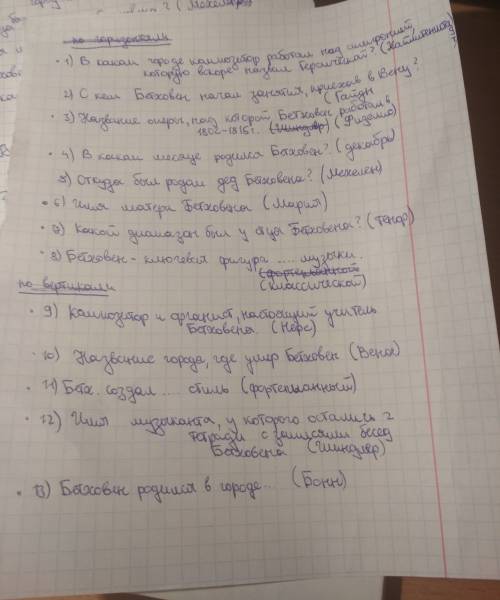 (Мехелен)
по горизонтали
1) В каком городе композитор работал над симфонией,
которую вскоре назвал Героической?
2) С кем Бетховен начал занятия, приехав в Вену?
(Гайдн
3) Название оперы, над которой Бетховен работал в
1802-1815г. (Шиндлер) (Фиделио)
4) В каком месяце родился Бетховен? (декабрь)
5) Откуда был родом дед Бетховена? (Мехелен)
6) Имя матери Бетховена (Мария)
7) Какой диапазон был у отца Бетховена? (тенор)
8) Бетховен - ключевая фигура ..... музыки.
(фортепьянной
(классической)
по вертикали
9) Композитор и органист, настоящий учитель
Бетховена (Нефе)
10) Название города, где умер Бетховен (Вена)
11) Бетх. создал .... стиль (фортепьянный)
12) Имя музыканта, у которого остались 2
тетради с записями бесед
Бетховена (Шиндлер)
13) Бетховен родился в городе... (Бонн)